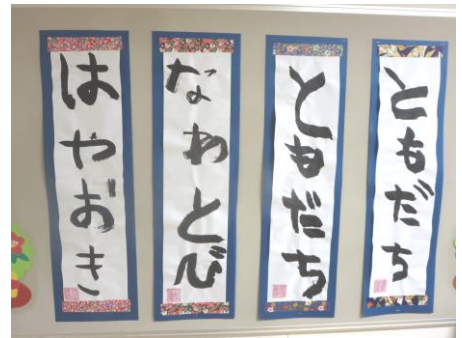 ともだち
ともだち
なわとび
はやおき